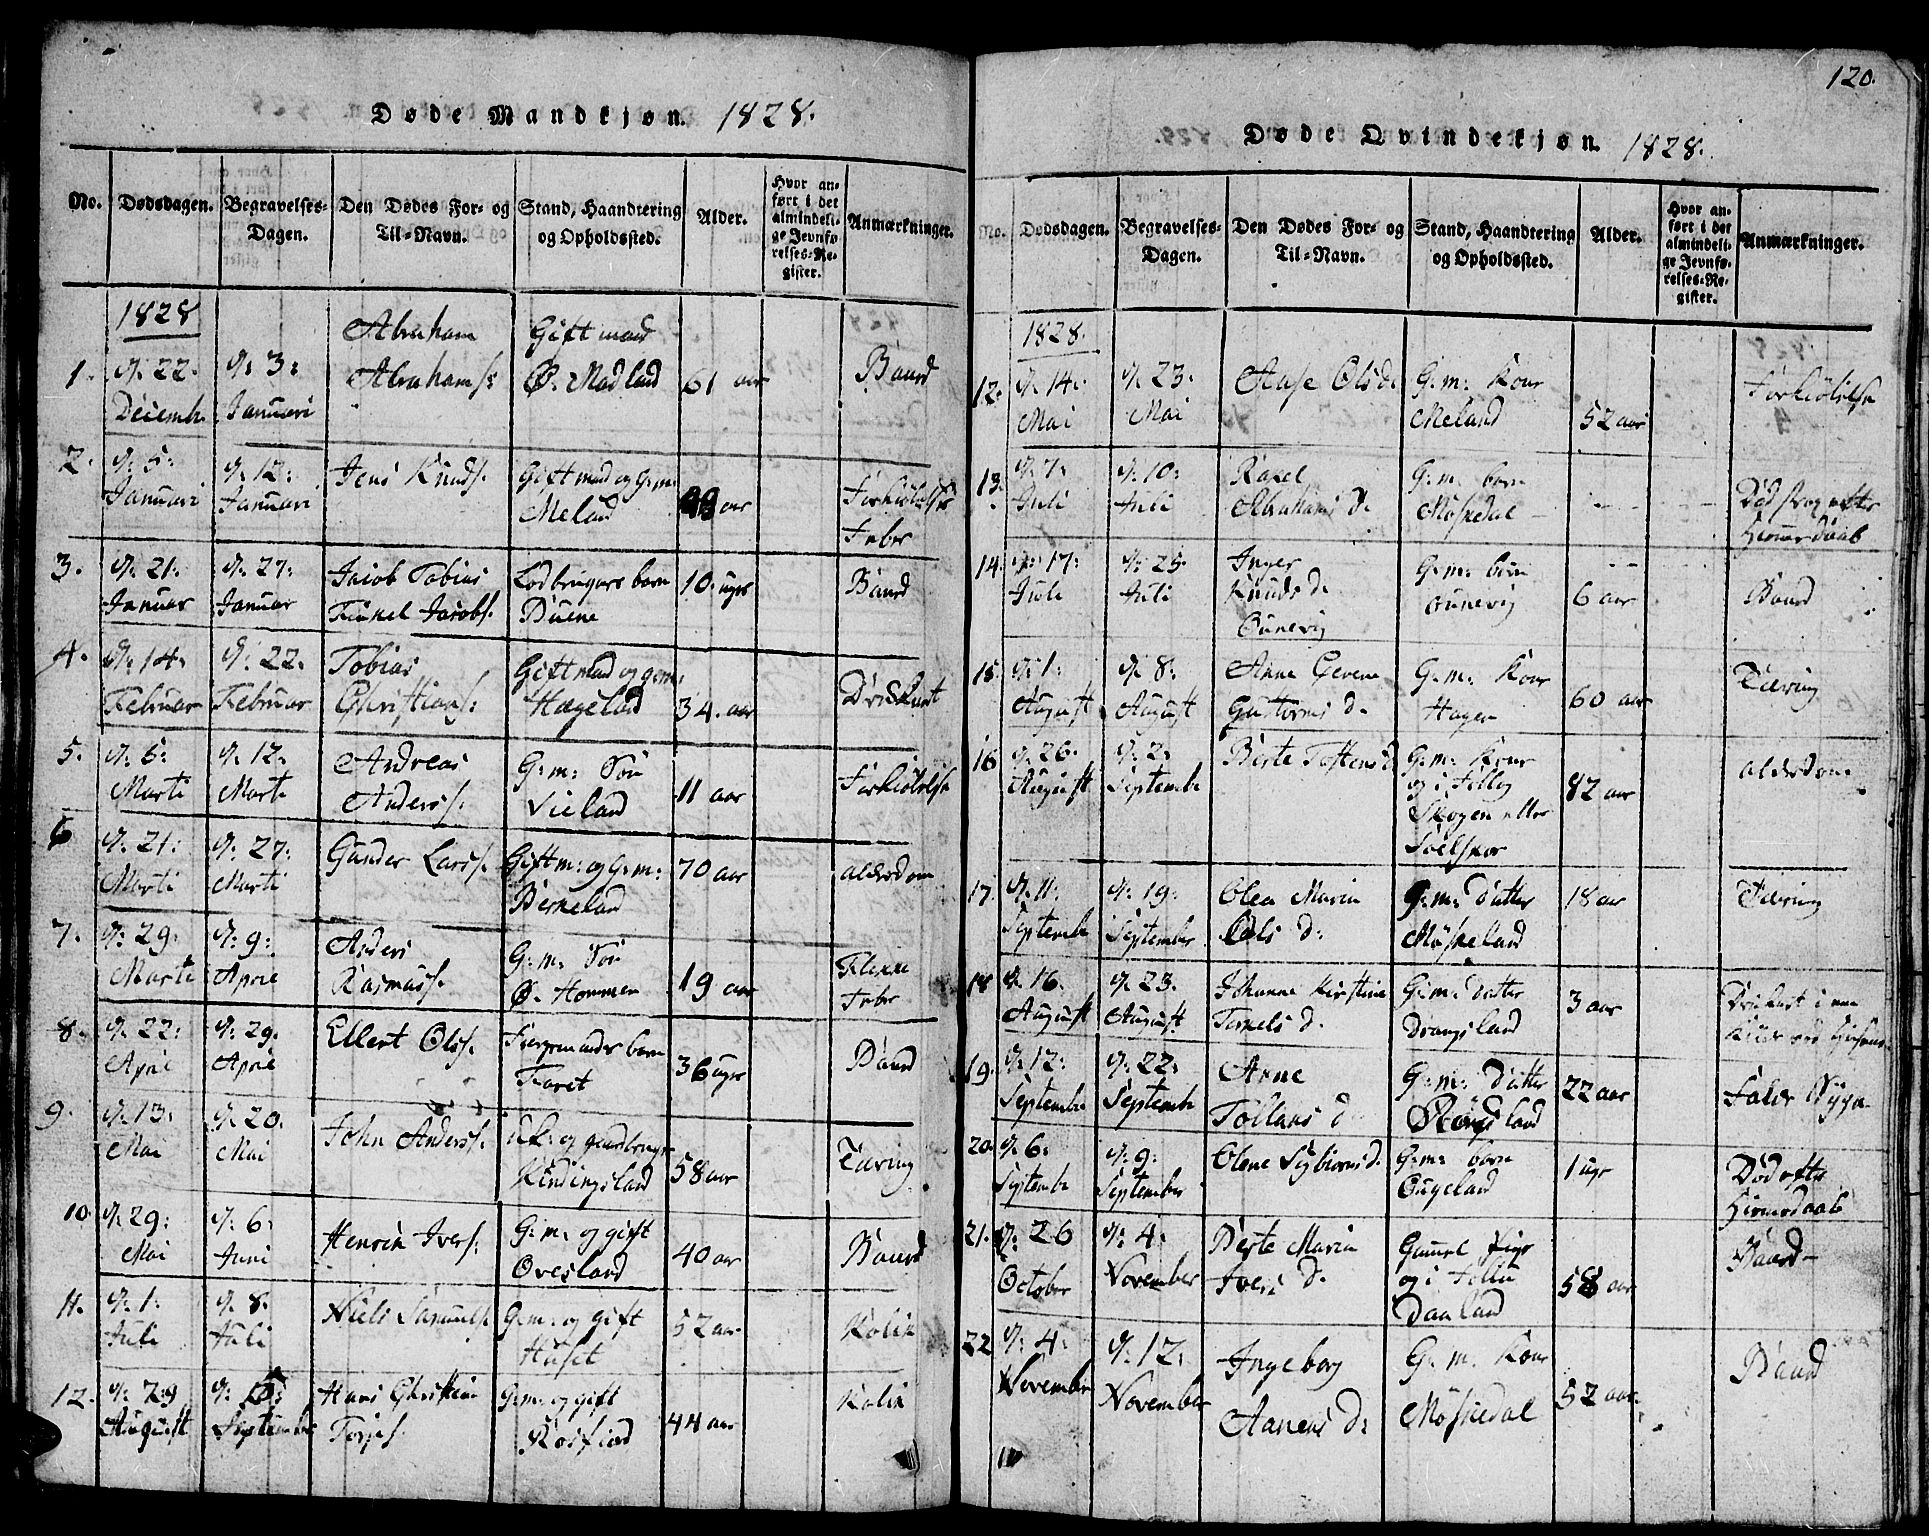 Døde Mandkjøn. 1828.
No.
Dødsdagen.
Begravelses-Dagen.
Den Dødes For- og Til-Navn.
Stand, Haandtering og Opholdssted.
Alder.
Hvor anført i det almindelige Jevnførelses-Register.
Anmærkninger.
1828
1. d: 22. Decemb. d: 3: Januari Abraham Abrahams: Gift mand Ø. Madland 61 aar
2. d: 5: Januari d: 12: Januari Jens Knuds. Gift mand og G:m: Meland aar Forkiølelse Feber
3. d: 21. Januar d: 27: Januar Jacob Tobias Jacobs. barn 10. uger
4. d: 14: Februar d: 22: Februar Tobias Christians: Gift mand og g:m: Hægeland 34. aar
5. d: 5: Marti d: 12: Marti Andreas Anderss. G:m: Søn Vieland 11 aar Forkiølelse
6 d: 21: Marti d: 27: Marti Gunder Larss. Gift m: og G:m: Birkeland 70 aar alderdom
7. d: 29: Marti d: 9: April Anders Rasmuss. G:m: Søn Ø. Hommen 19 aar Feber
8. d: 22: April d: 29: April Ellert Olss. barn 36 uger
9. d: 13: Mai d: 20: Mai John Anderss. og gaardbruger Kindingsland 58 aar Tæring
10. d: 29: Mai d: 6: Juni Henrik Ivers: G:m: og gift Øvesland 40 aar
11. d: 1: Juli d: 8. Juli Niels Samuels. G:m: og gift Huset 52 aar Kolik
12. d: 29 August d: September Hans Christian Torjes. G:m: og gift Rosfiord 44 aar Kolik
120.
Døde Qvindekjøn. 1828.
No.
Dødsdagen.
Begravelses-Dagen.
Den Dødes For- og Til-Navn.
Stand, Haandtering og Opholdssted.
Alder.
Hvor anført i det almindelige Jevnførelses-Register.
Anmærkninger.
1828.
12. d: 14: Mai d: 23: Mai Aase Olsd. G:m: Kone Meland 52 aar Forkiølelse
13. d: 7: Juli d: 10: Juli Rakel Abrahams d. G:m: barn Møskedal Død strax efter Hiemmedaab
14. d: 17: Juli d: 25. Juli Inger Knuds d. Ounevig G:m: barn Ounevig 6 aar
15. d: 1: August d: 8: August Anne Gustovus d. G:m: Kone Hagen 60 aar Tæring
16 d: 26: August d: 2: September Berte Tostens d G:m: Kone og i Fellig Skogen eller 82 aar alderdom
17. d: 11: September d: 19: September Olea Maria Ols d: G:m: datter Møskeland 18 aar Tæring
18 d: 16. August d: 23. August Johanne Kirstine Terkels d. G:m: datter Drangsland 3 aar
19. d: 12: September d: 22: September Anne Tollaks d G:m: datter 22 aar
20. d: 6: September d: 9: September Olene Sigbiørns d. G:m: barn Ougeland 1 uge Død efter Hiemmedaab
21. d: 26 October d: 4: November Berte Maria Ivers d. Gammel Pige og i Daaland 58 aar
22 d: 4: November d: 12: November Ingeborg Aanens d: G: m: Kone Møskedal 52 aar.